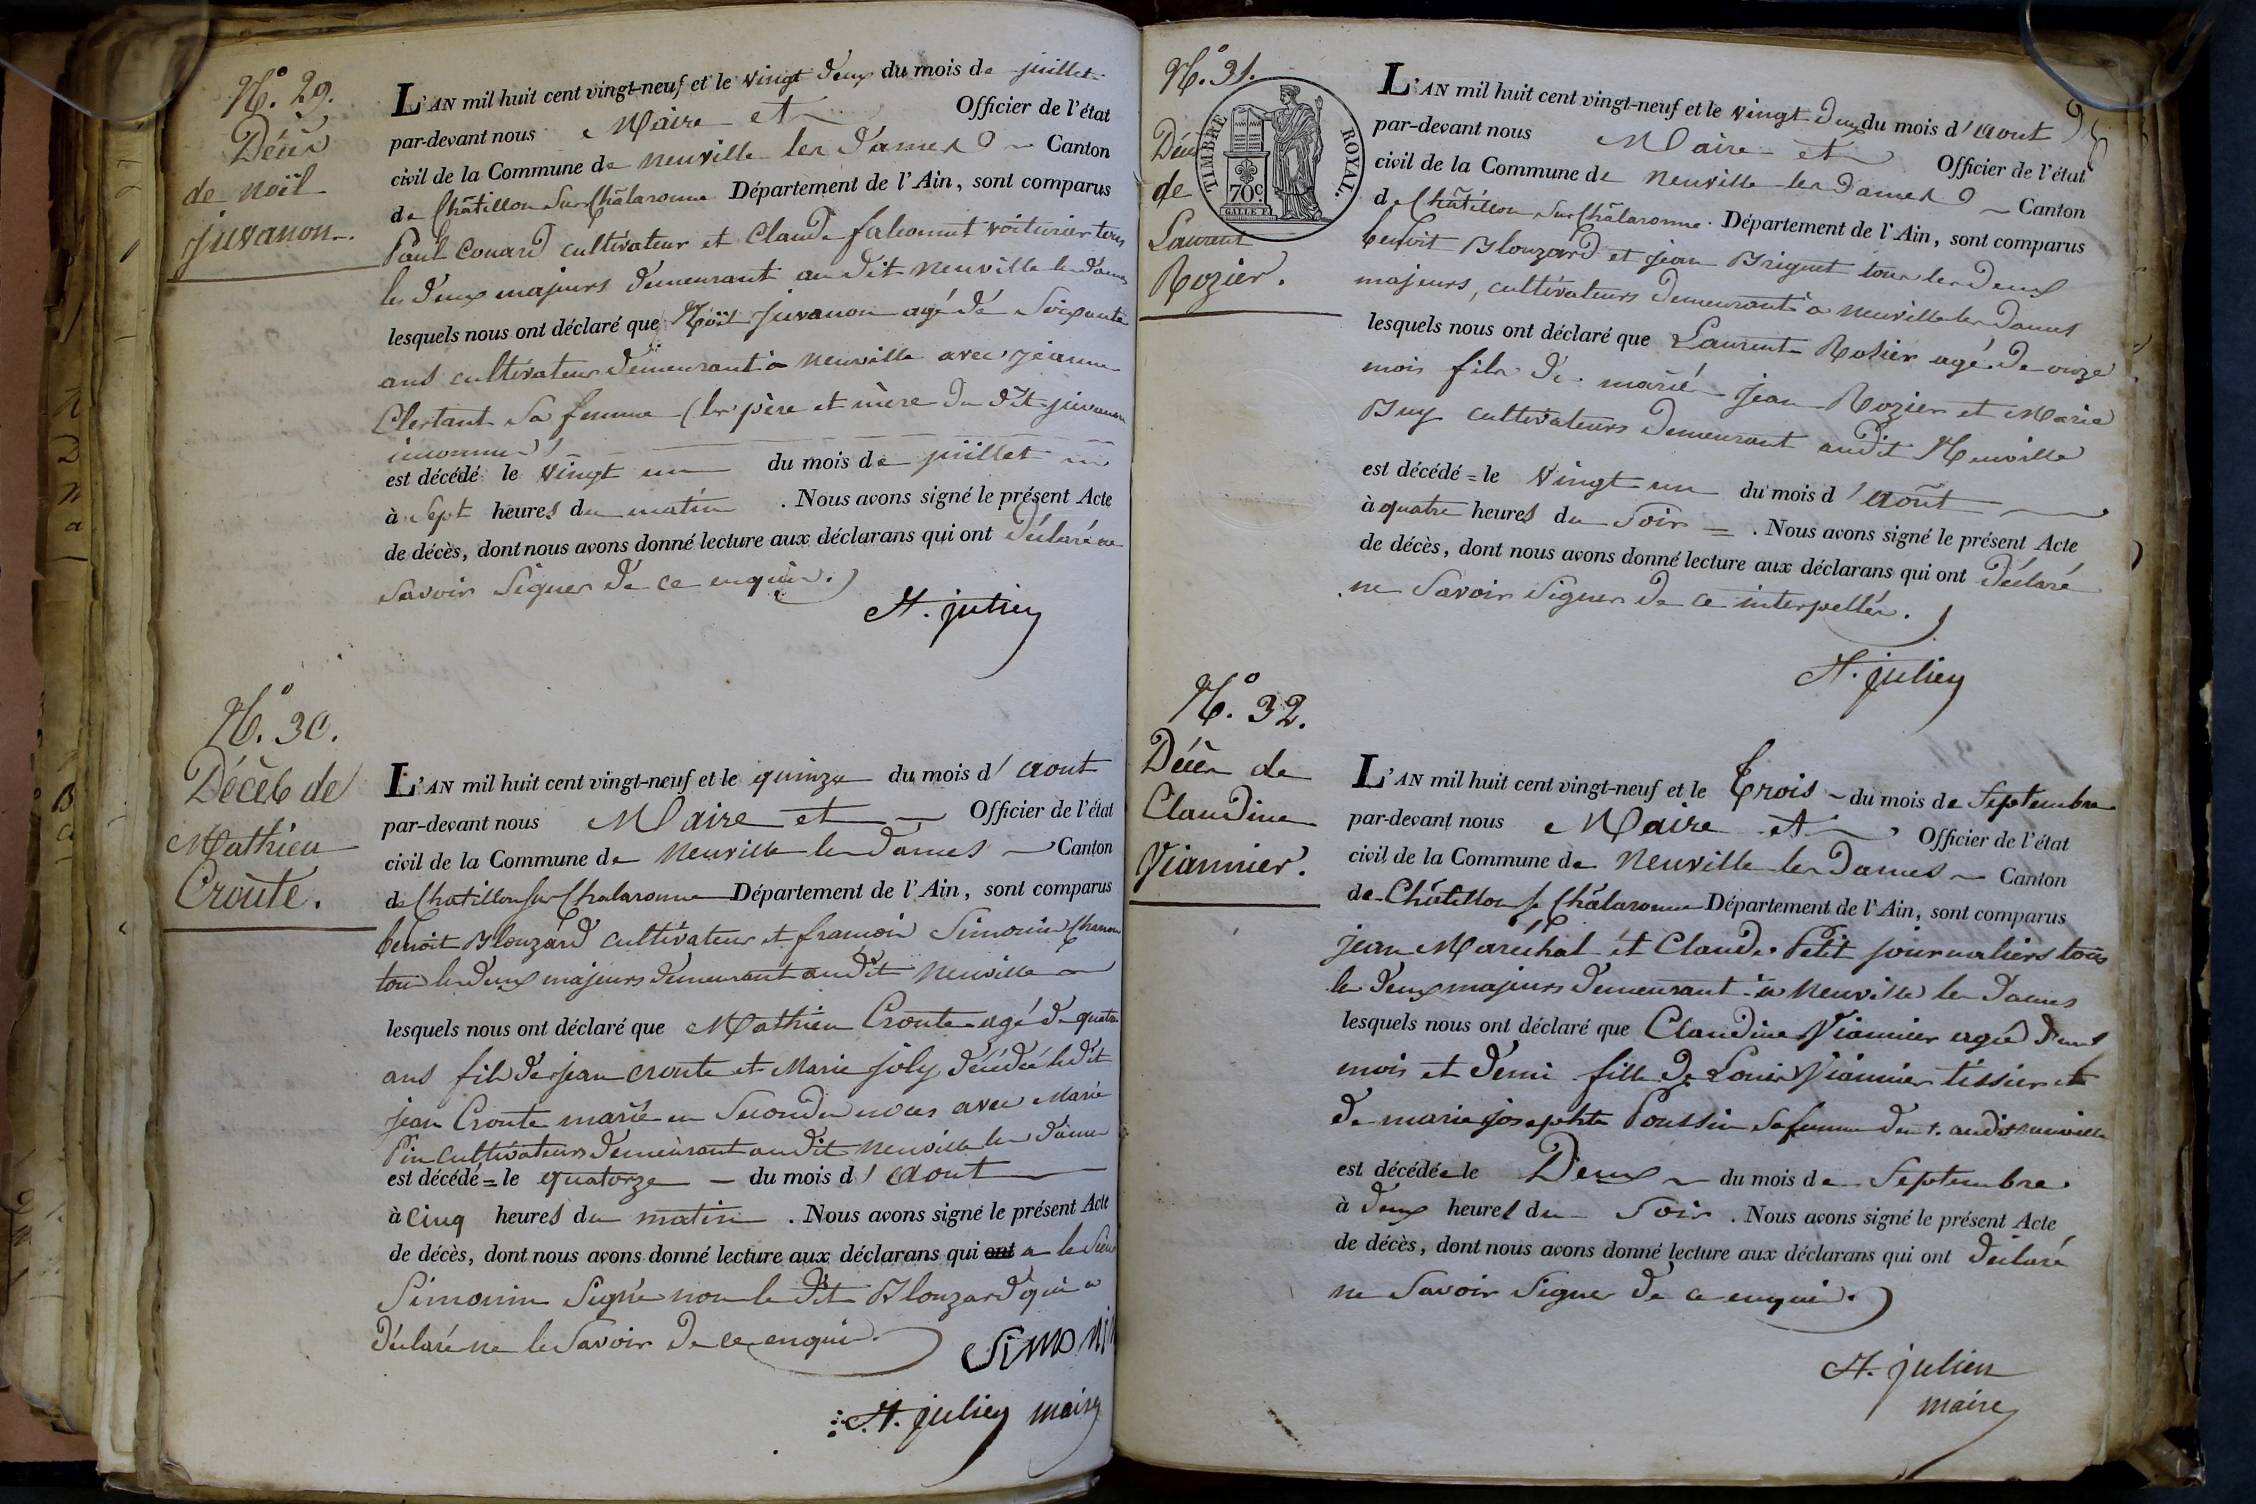 N.º 29.
Décès
de Noël
Juvanon.
L'AN mil huit cent vingt-neuf et le vingt deux du mois de juillet
par-devant nous Maire et Officier de l'état
civil de la Commune de Neuville les Dames Canton
de Châtillon Sur Châlaronne Département de l'Ain, sont comparus
Paul Couard cultivateur et Claude voiturier tous
les deux majeurs demeurant au dit Neuville les dames
lesquels nous ont déclaré que Noël Juvanon agé de Soixante
ans cultivateur demeurant à Neuville avec jeanne
Sa femme (les père et mère du dit juvanon
inconnus)
est décédé le vingt un du mois de juillet
à Sept heures du matin . Nous avons signé le présent Acte
de décès, dont nous avons donné lecture aux déclarans qui ont déclaré ne
Savoir Signer de ce enquis.
St. julien
N.º 30.
Décès de
Mathieu
Croute.
L'AN mil huit cent vingt-neuf et le quinze du mois d'aout
par-devant nous Maire et Officier de l'état
civil de la Commune de Neuville les Dames Canton
de Chatillon sur Chalaronne Département de l'Ain, sont comparus
benoit Blouzard cultivateur et francois Simonin
tous les deux majeurs demeurant audit Neuville
lesquels nous ont déclaré que Mathieu Croute agé de quatre
ans fils de jean croute et Marie joly décédée le dit
jean Croute marié en Secondes noces avec Marie
Pin cultivateurs demeurant audit Neuville les dames
est décédé = le quatorze du mois d'aout
à cinq heures du matin . Nous avons signé le présent Acte
de décès, dont nous avons donné lecture aux déclarans qui ont a le Sieur
Simonin Signé non le dit Blouzard qui a
déclaré ne le Savoir de ce enquis.
Simonin
St. julien maire
N.º 31.
TIMBRE ROYAL.
70c.
Décès
de
Laurent
Rozier.
L'AN mil huit cent vingt-neuf et le vingt deux du mois d'aout
par-devant nous Maire et Officier de l'état
civil de la Commune de Neuville les Dames Canton
de Châtillon Sur Châlaronne. Département de l'Ain, sont comparus
benoit Blouzard et jean Briguet tous les deux
majeurs, cultivateurs demeurant à Neuville les Dames
lesquels nous ont déclaré que Laurent Rosier agé de onze
mois fils de marié Jean Rozier et Marie
Buy cultivateurs demeurant audit Neuville
est décédé = le vingt un du mois d'Aout
à quatre heures du Soir = . Nous avons signé le présent Acte
de décès, dont nous avons donné lecture aux déclarans qui ont déclaré
ne Savoir Signer de ce interpellés.
St. julien
N.º 32.
Décès de
Claudine
Viannier.
L'AN mil huit cent vingt-neuf et le Trois du mois de Septembre
par-devant nous Maire et Officier de l'état
civil de la Commune de Neuville les Dames Canton
de Châtillon s Châlaronne Département de l'Ain, sont comparus
jean Marechal et Claude Petit journaliers tous
les deux majeurs demeurant à Neuville les Dames
lesquels nous ont déclaré que Claudine Viannier agée d'un
mois et demi fille de Louis Viannier tissier et
de marie josephte Poussin sa femme demt. audit neuville
est décédée le Deux du mois de Septembre
à deux heures du Soir . Nous avons signé le présent Acte
de décès, dont nous avons donné lecture aux déclarans qui ont déclaré
ne Savoir Signer de ce enquis.
St. julien
maire